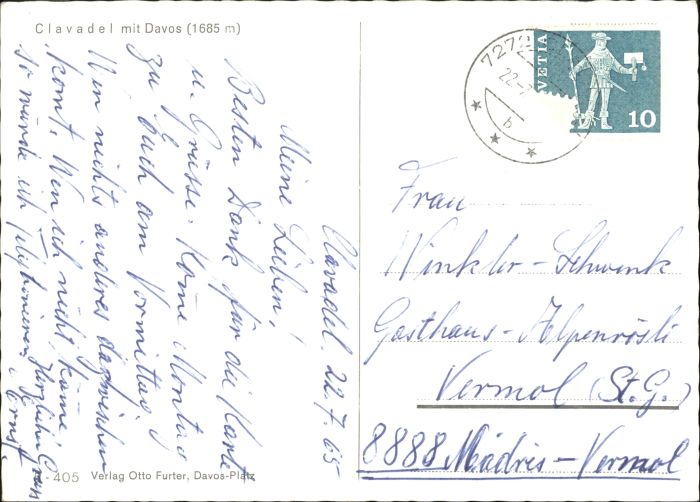 Clavadel mit Davos (1685 m)
Clavadel 22.7.65
Meine Lieben!
Besten Dank für die Karte
u. Grüsse. Kome Montag
zu Euch am Vormittag,
Wen nichts anderes dazwischen
komt. Wen ich nicht kome
so würde ich telephonieren
Herzliche Gruss
Ernst.
405 Verlag Otto Furter, Davos-Platz
7272
22.-7
b
VETIA
10
Frau
Winkler-Schwenk
Gasthaus-Alpenrösli
Vermol (St.G.)
8888 Mädris-Vermol